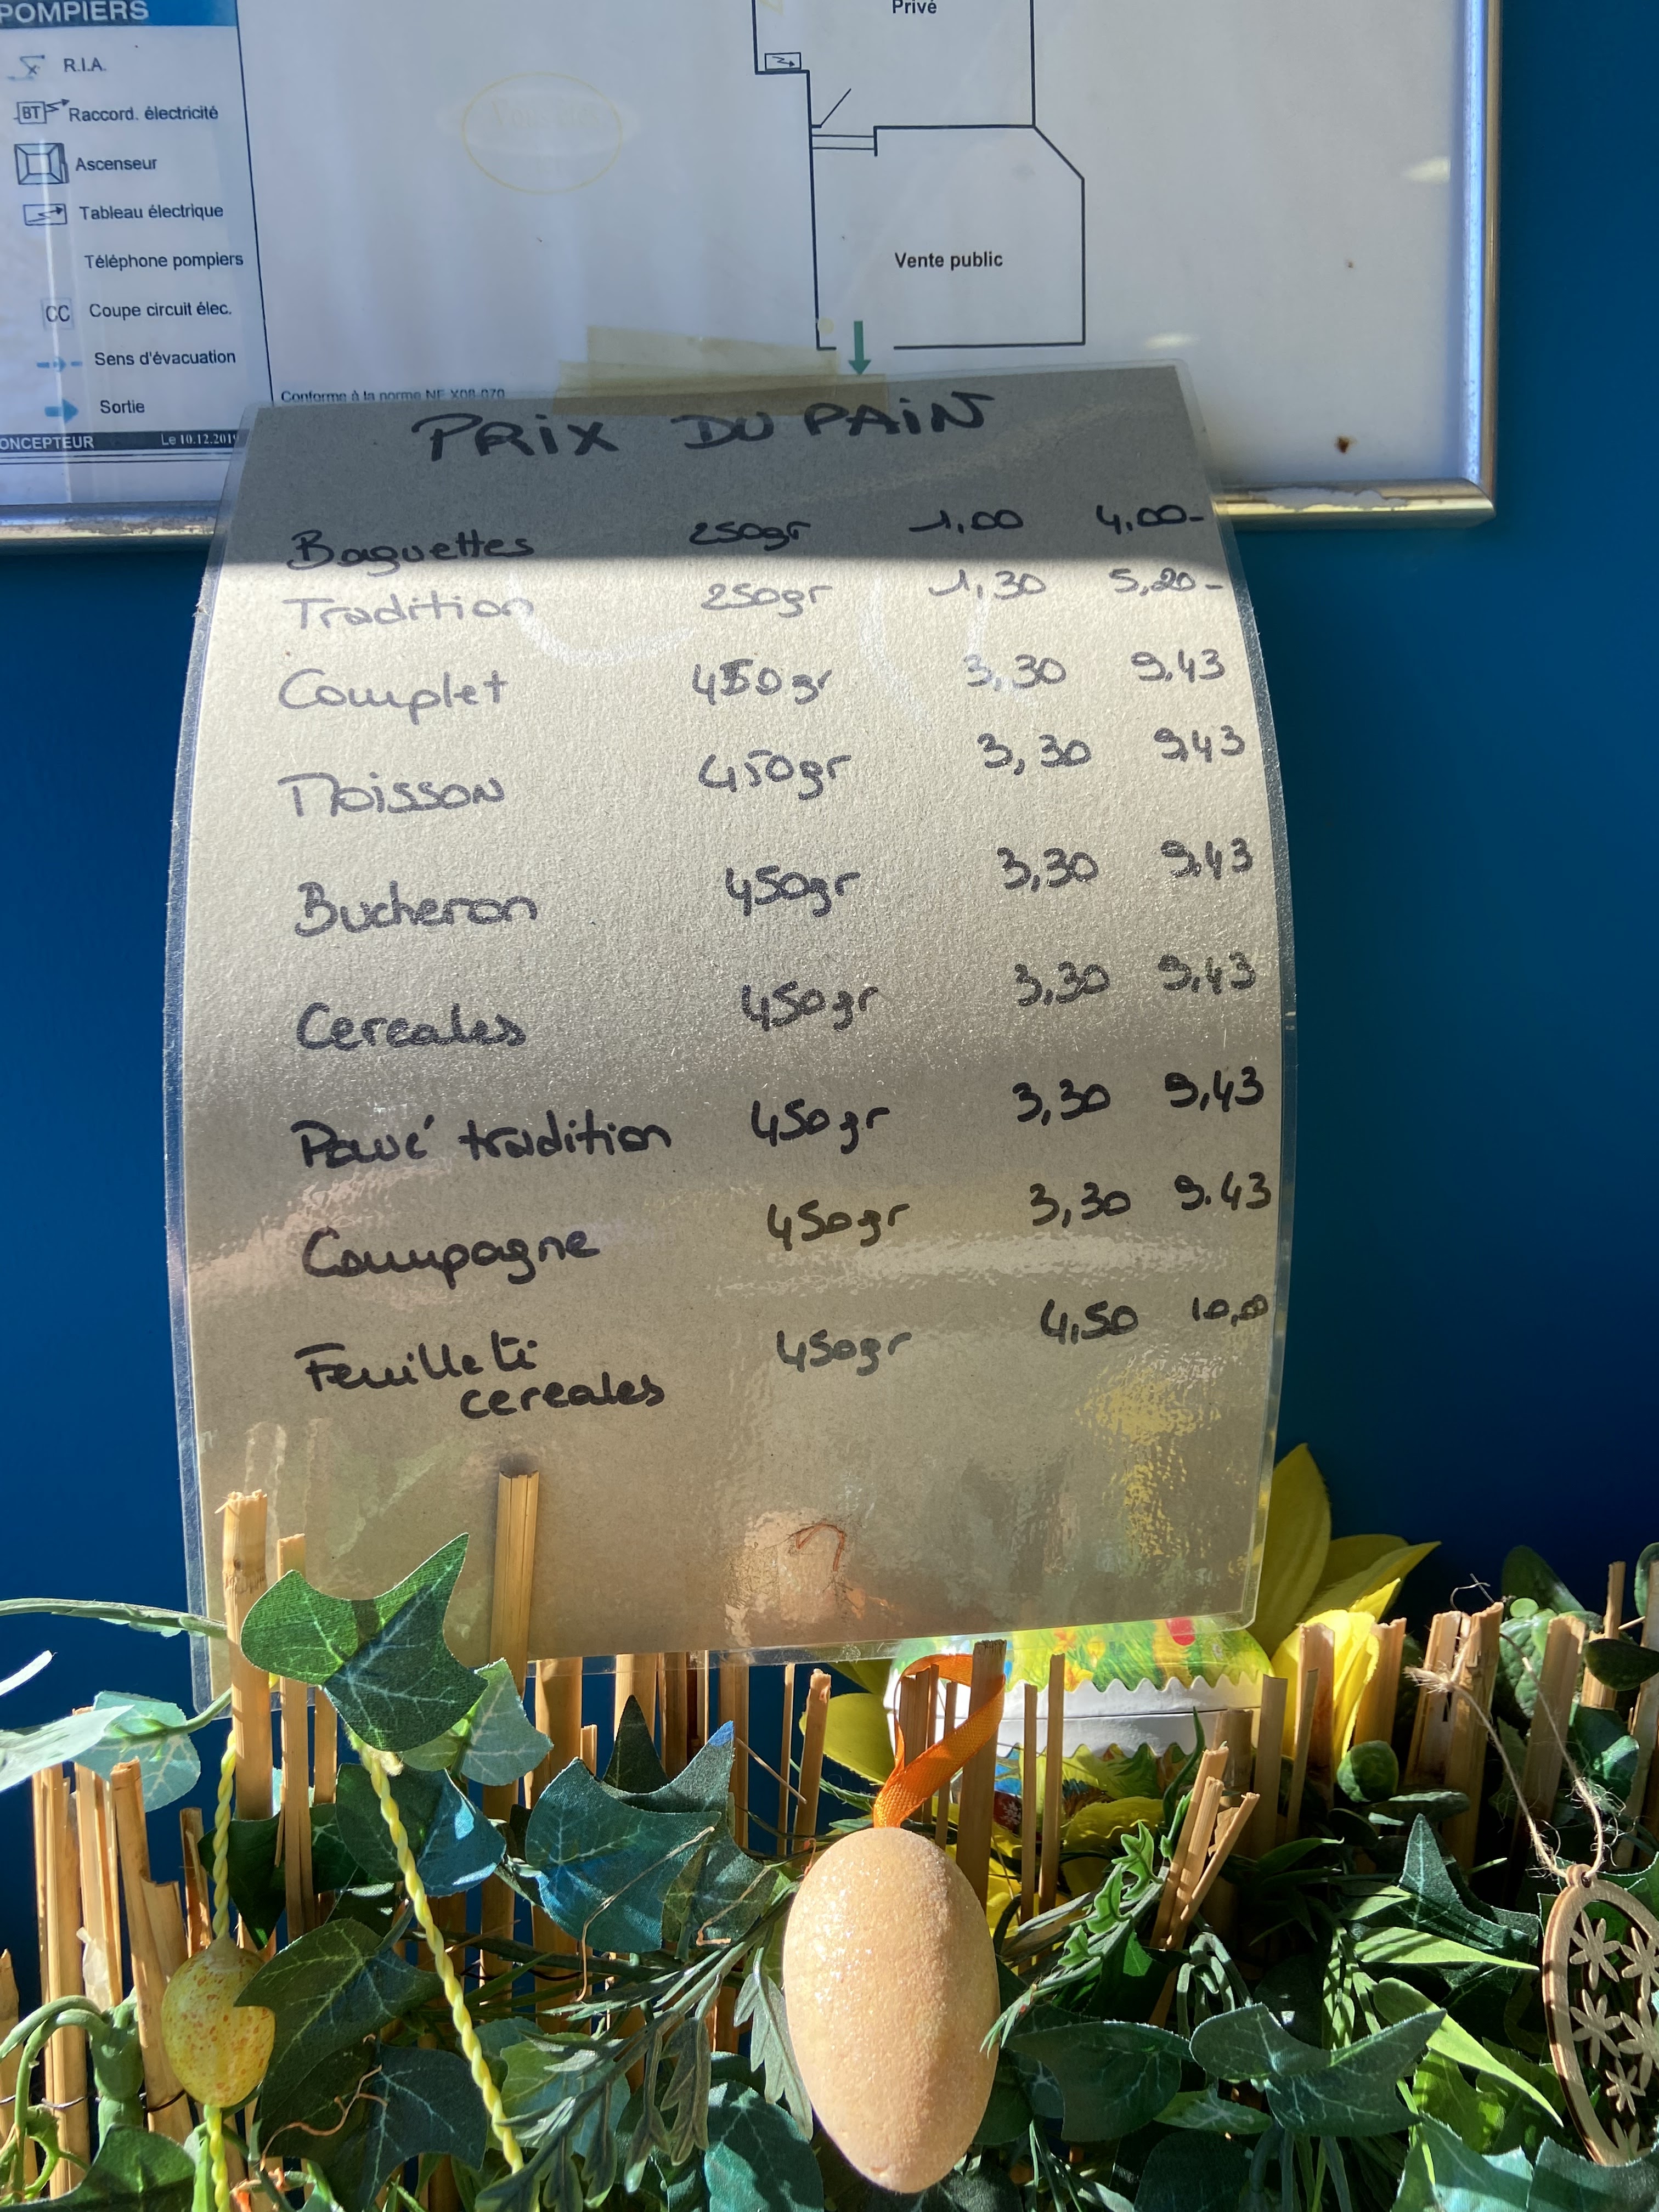 POMPIERS
R.I.A.
BT Raccord. électricité
Ascenseur
Tableau électrique
Téléphone pompiers
CC Coupe circuit élec.
Sens d'évacuation
Sortie
ONCEPTEUR Le 10.12.201
Privé
Vente public
Conforme à la norme NF X08-070
PRIX DU PAIN
Baguettes 250gr 1,00 4,00-
Tradition 250gr 1,30 5,20-
Complet 450gr 3,30 9,43
Moisson 450gr 3,30 9,43
Bucheron 450gr 3,30 9,43
Cereales 450gr 3,30 9,43
Pavé tradition 450gr 3,30 9,43
Campagne 450gr 3,30 9.43
Feuilleti 450gr 4,50 10,00
cereales